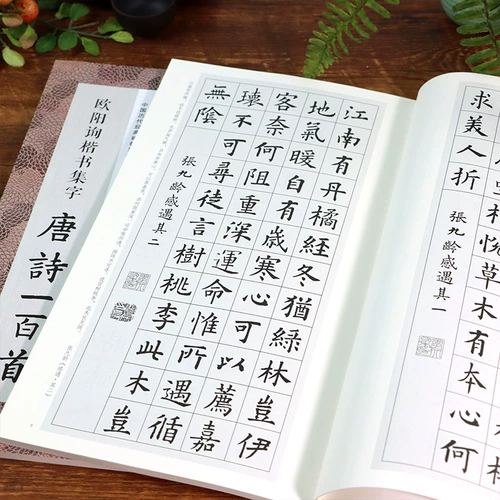 相悅草木有本心何
求美人折
張九齡感遇其一
江南有丹橘經冬猶綠林豈伊
地氣暖自有歲寒心可以薦嘉
客奈何阻重深運命惟所遇循
環不可尋徒言樹桃李此木豈
無陰
張九齡感遇其二
中国历代经典
欧阳询楷书集字
唐詩一百首